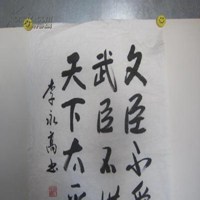 文臣不愛
武臣不惜
天下太平
李永高书